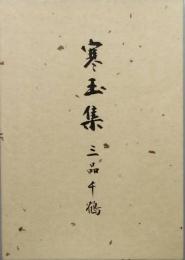 寒玉集
三品千鶴